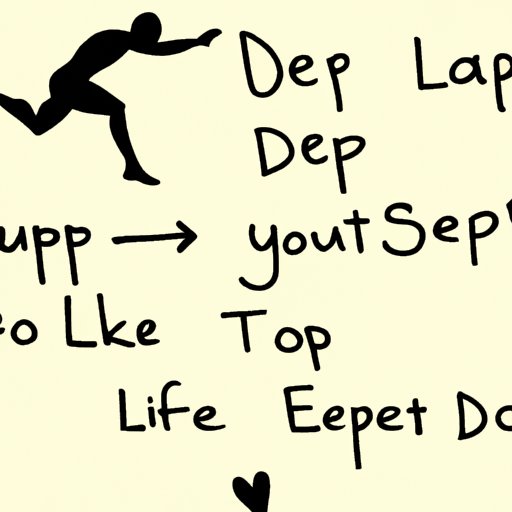 Dep Lap
Dep
upp → youtSep
o Lke Top
Life Eepet Do